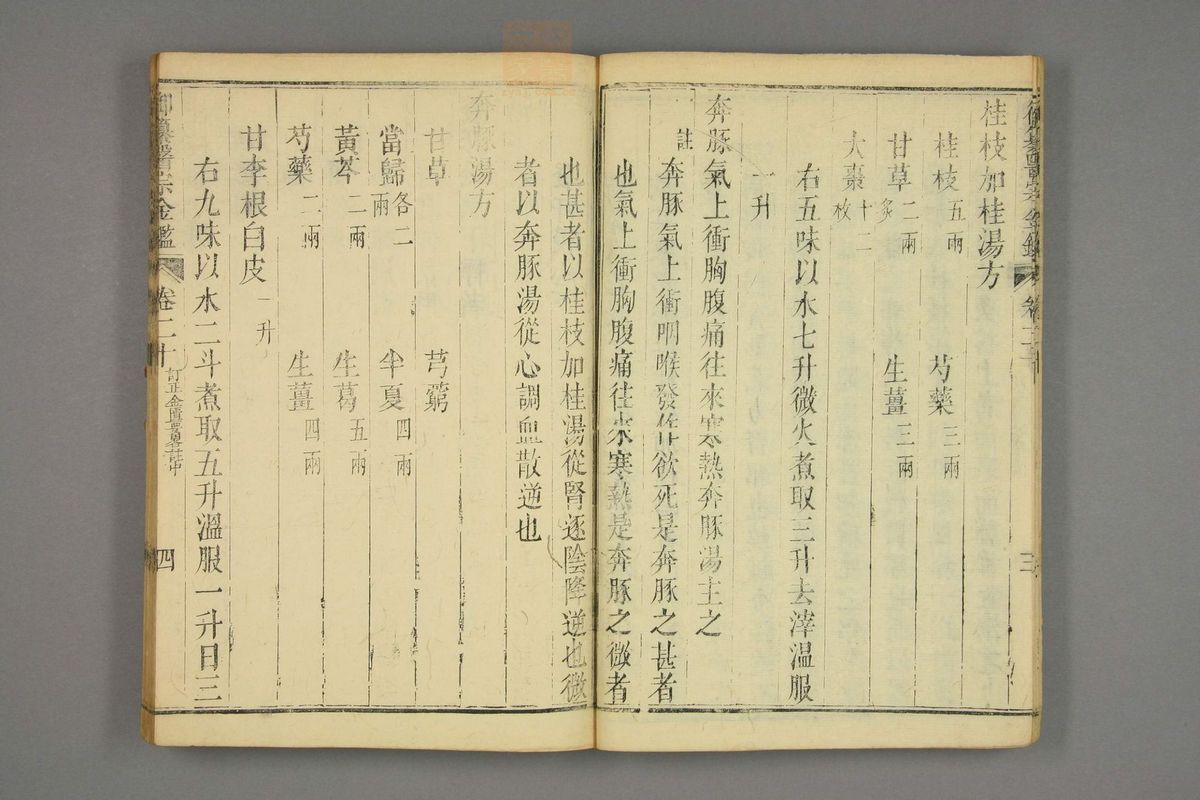 桂枝加桂湯方
桂枝 五兩 芍藥 三兩
甘草 二兩炙 生薑 三兩
大棗 十二枚
右五味以水七升微火煮取三升去滓溫服
一升
奔豚氣上衝胸腹痛往來寒熱奔豚湯主之
註奔豚氣上衝咽喉發作欲死是奔豚之甚者
也氣上衝胸腹痛往來寒熱是奔豚之微者
也甚者以桂枝加桂湯從腎逐陰降逆也微
者以奔豚湯從心調血散逆也
奔豚湯方
甘草 芎藭
當歸 各二兩 半夏 四兩
黃芩 二兩 生葛 五兩
芍藥 二兩 生薑 四兩
甘李根白皮 一升
右九味以水二斗煮取五升溫服一升日三
御纂醫宗金鑑 卷二十 訂正金匱要畧註中 四